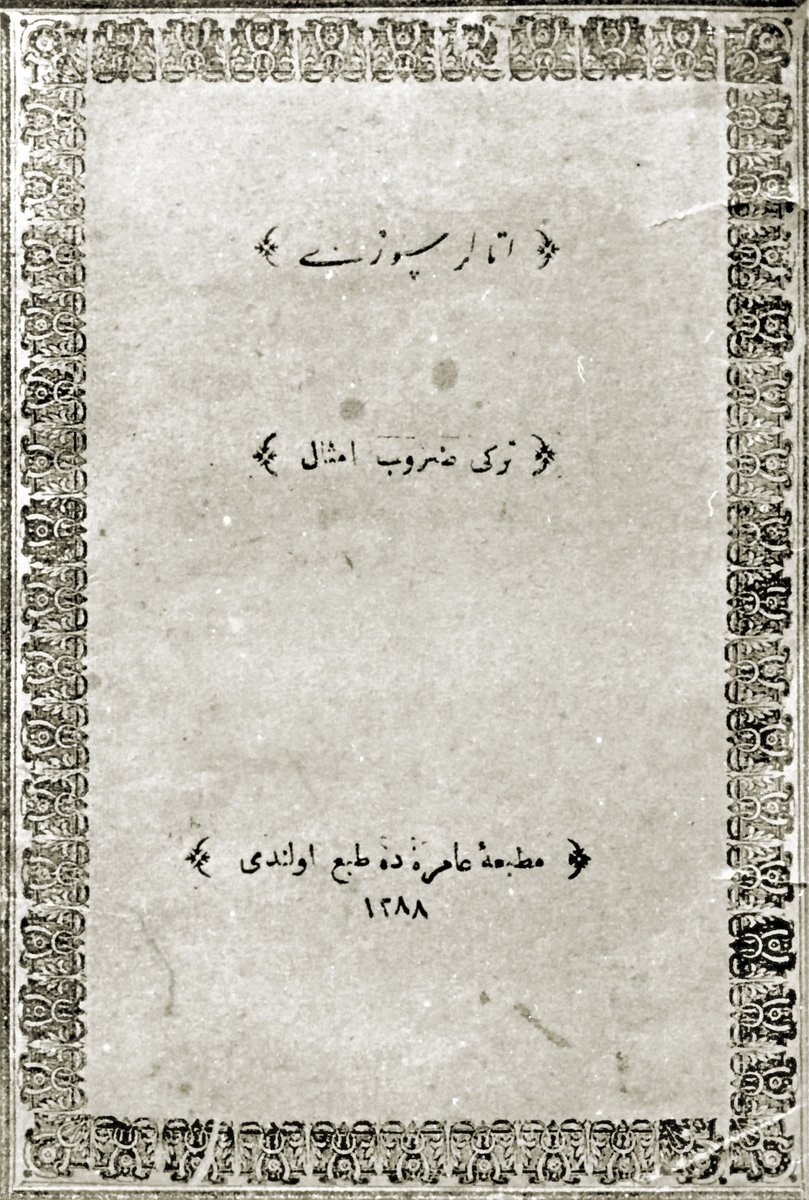 ﴿ اتالر سوزی ﴾
﴿ ترکی ضروب امثال ﴾
﴿ مطبعهٔ عامره ده طبع اولندی ﴾
١٢٨٨